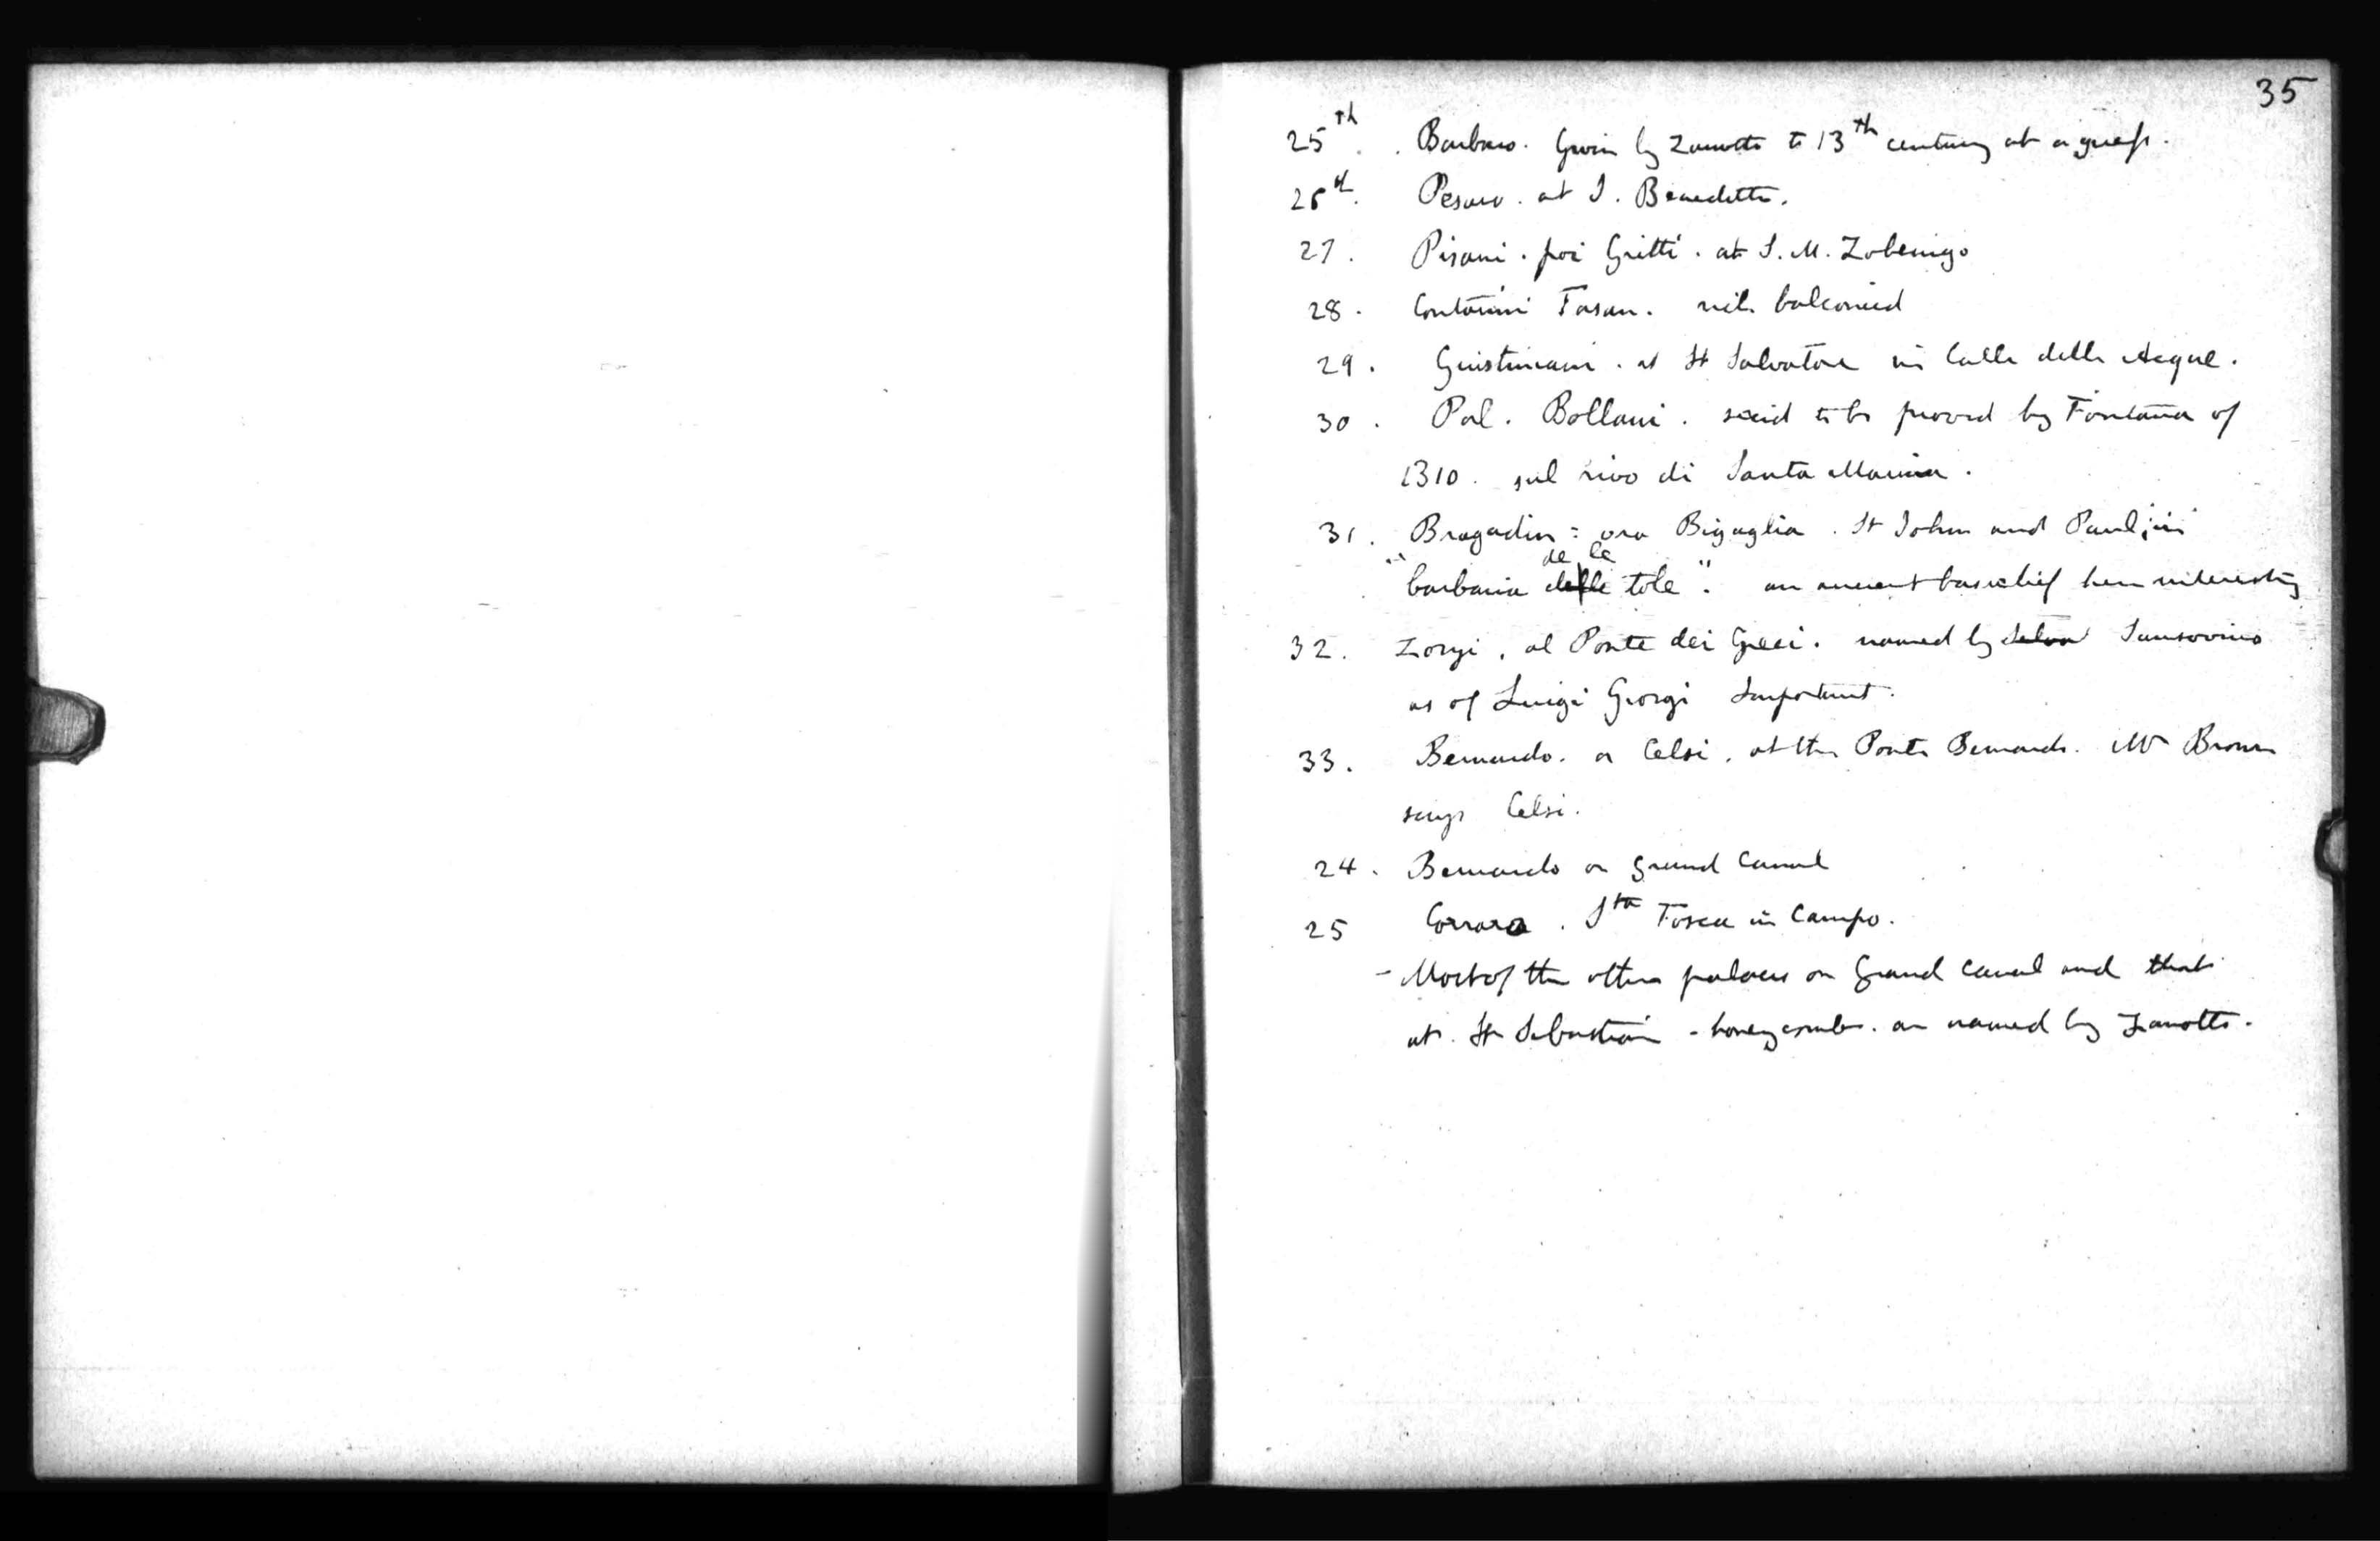 35
25th. Barbaro. Given by Zanotto to 13th century at a guess.
26th. Pesaro. at S. Benedetto.
27. Pisani. poi Gritti. at S. M. Zobenigo
28. Contarini Fasan. rich balconied
29. Giustiniani. at St Salvatore in Calle delle Acque.
30. Pal. Bollani. said to be proved by Fontana of
1310. sul rivo di Santa Marina.
31. Bragadin = ora Bigaglia. St John and Paul; in
de le
"barbaria delle tole". an ancient basrelief here interesting
32. Zorzi. al Ponte dei Greci. named by Selva Sansovino
as of Luigi Giorgi Important.
33. Bernardo. or Celsi. at the Ponte Bernardo. Mr Brown
says Celsi.
24. Bernardo on Grand Canal
25 Corraro. Sta Fosca in Campo.
- Most of the other palaces on Grand Canal and that
at. St Sebastian - honeycomb. are named by Zanotto.